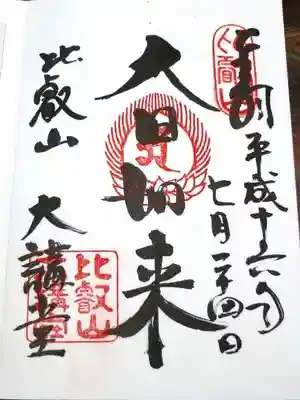 平成十六年
七月二十四日
大日如来
比叡山 大講堂
比叡山